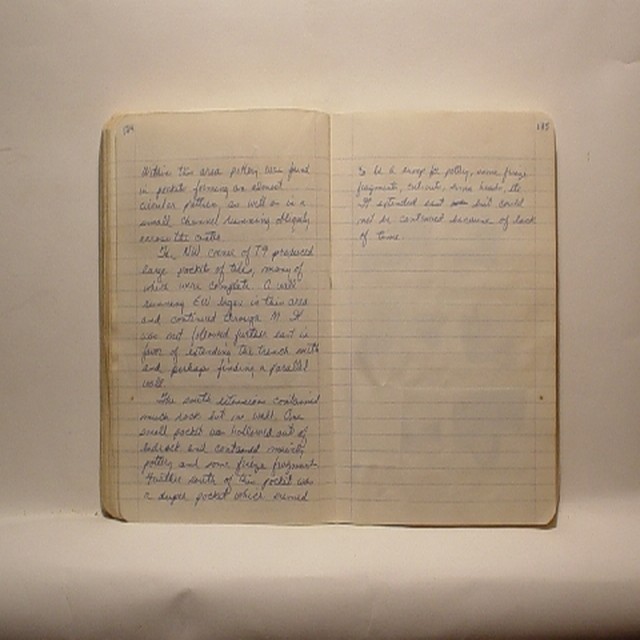 184
Within this area pottery was found
in pockets forming an almost
circular pattern, as well as in a
small channel running obliquely
across the
The NW corner of T9 produced
large pocket of tiles, many of
which were complete. A wall
running EW began in this area
and continued through M. It
was not followed further east in
favor of extending the trench south
and perhaps finding a parallel
wall.
The south extensions contained
much rock but no wall. One
small pocket was hollowed out of
bedrock and contained mainly
pottery and some frieze fragments.
Further south of this pocket was
a deeper pocket which seemed
185
to be a dump for pottery, some frieze
fragments, cut-outs, heads, etc
It extended east but could
not be continued because of lack
of time.